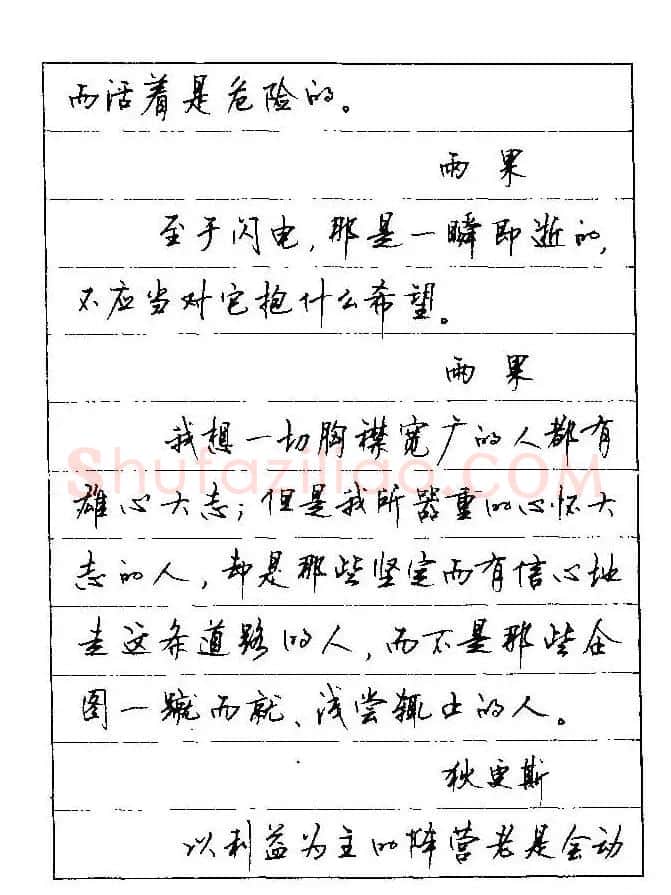 而活着是危险的。
雨果
至于闪电,那是一瞬即逝的,
不应当对它抱什么希望。
雨果
我想一切胸襟宽广的人都有
shufaziliao.COM
雄心大志;但是我所器重的心怀大
志的人,却是那些坚定而有信心地
走这条道路的人,而不是那些企
图一蹴而就、浅尝辄止的人。
狄更斯
以利益为主的阵营老是会动